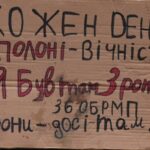 КОЖЕН DЕНЬ
ПОЛОНІ-ВІЧНІСТ
Я БУВ ТАМ 3 РОК
36 ОБРМП
ОНИ-ДОСІ ТАМ